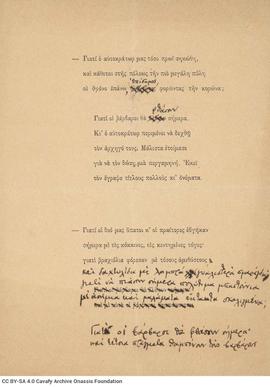 — Γιατί ὁ αὐτοκράτωρ μας τόσο πρωῒ σηκώθη,
καὶ κάθεται στῆς πόλεως τὴν πιὸ μεγάλη πύλη
στὸ θρόνο ἐπάνω, ἐπίσημος, φορώντας τὴν κορώνα;
φθάσουν
Γιατὶ οἱ βάρβαροι θὰ σήμερα.
Κι' ὁ αὐτοκράτωρ περιμένει νὰ δεχθῇ
τὸν ἀρχηγό τους. Μάλιστα ἑτοίμασε
γιὰ νὰ τὸν δώσῃ μιὰ περγαμηνή. Ἐκεῖ
τὸν ἔγραψε τίτλους πολλοὺς κι' ὀνόματα.
— Γιατί οἱ δυό μας ὕπατοι κ' οἱ πραίτορες ἐβγῆκαν
σήμερα μὲ τὲς κόκκινες, τὲς κεντημένες τόγες·
γιατί βραχιόλια φόρεσαν μὲ τόσους ἀμεθύστους
καὶ δαχτυλίδια μὲ λαμπρὰ γυαλιστερὰ σμαράγδια·
γιατί νὰ πιάσουν σήμερα πολύτιμα μπαστούνια
μὲ ἀσήμια καὶ μαλάματα ἔκτακτα σκαλιγμένα;
Γιατὶ οἱ βάρβαροι θὰ φθάσουν σήμερα·
καὶ τέτοια πράγματα θαμπόνουν τοὺς βαρβάρους
CC BY-SA 4.0 Cavafy Archive Onassis Foundation